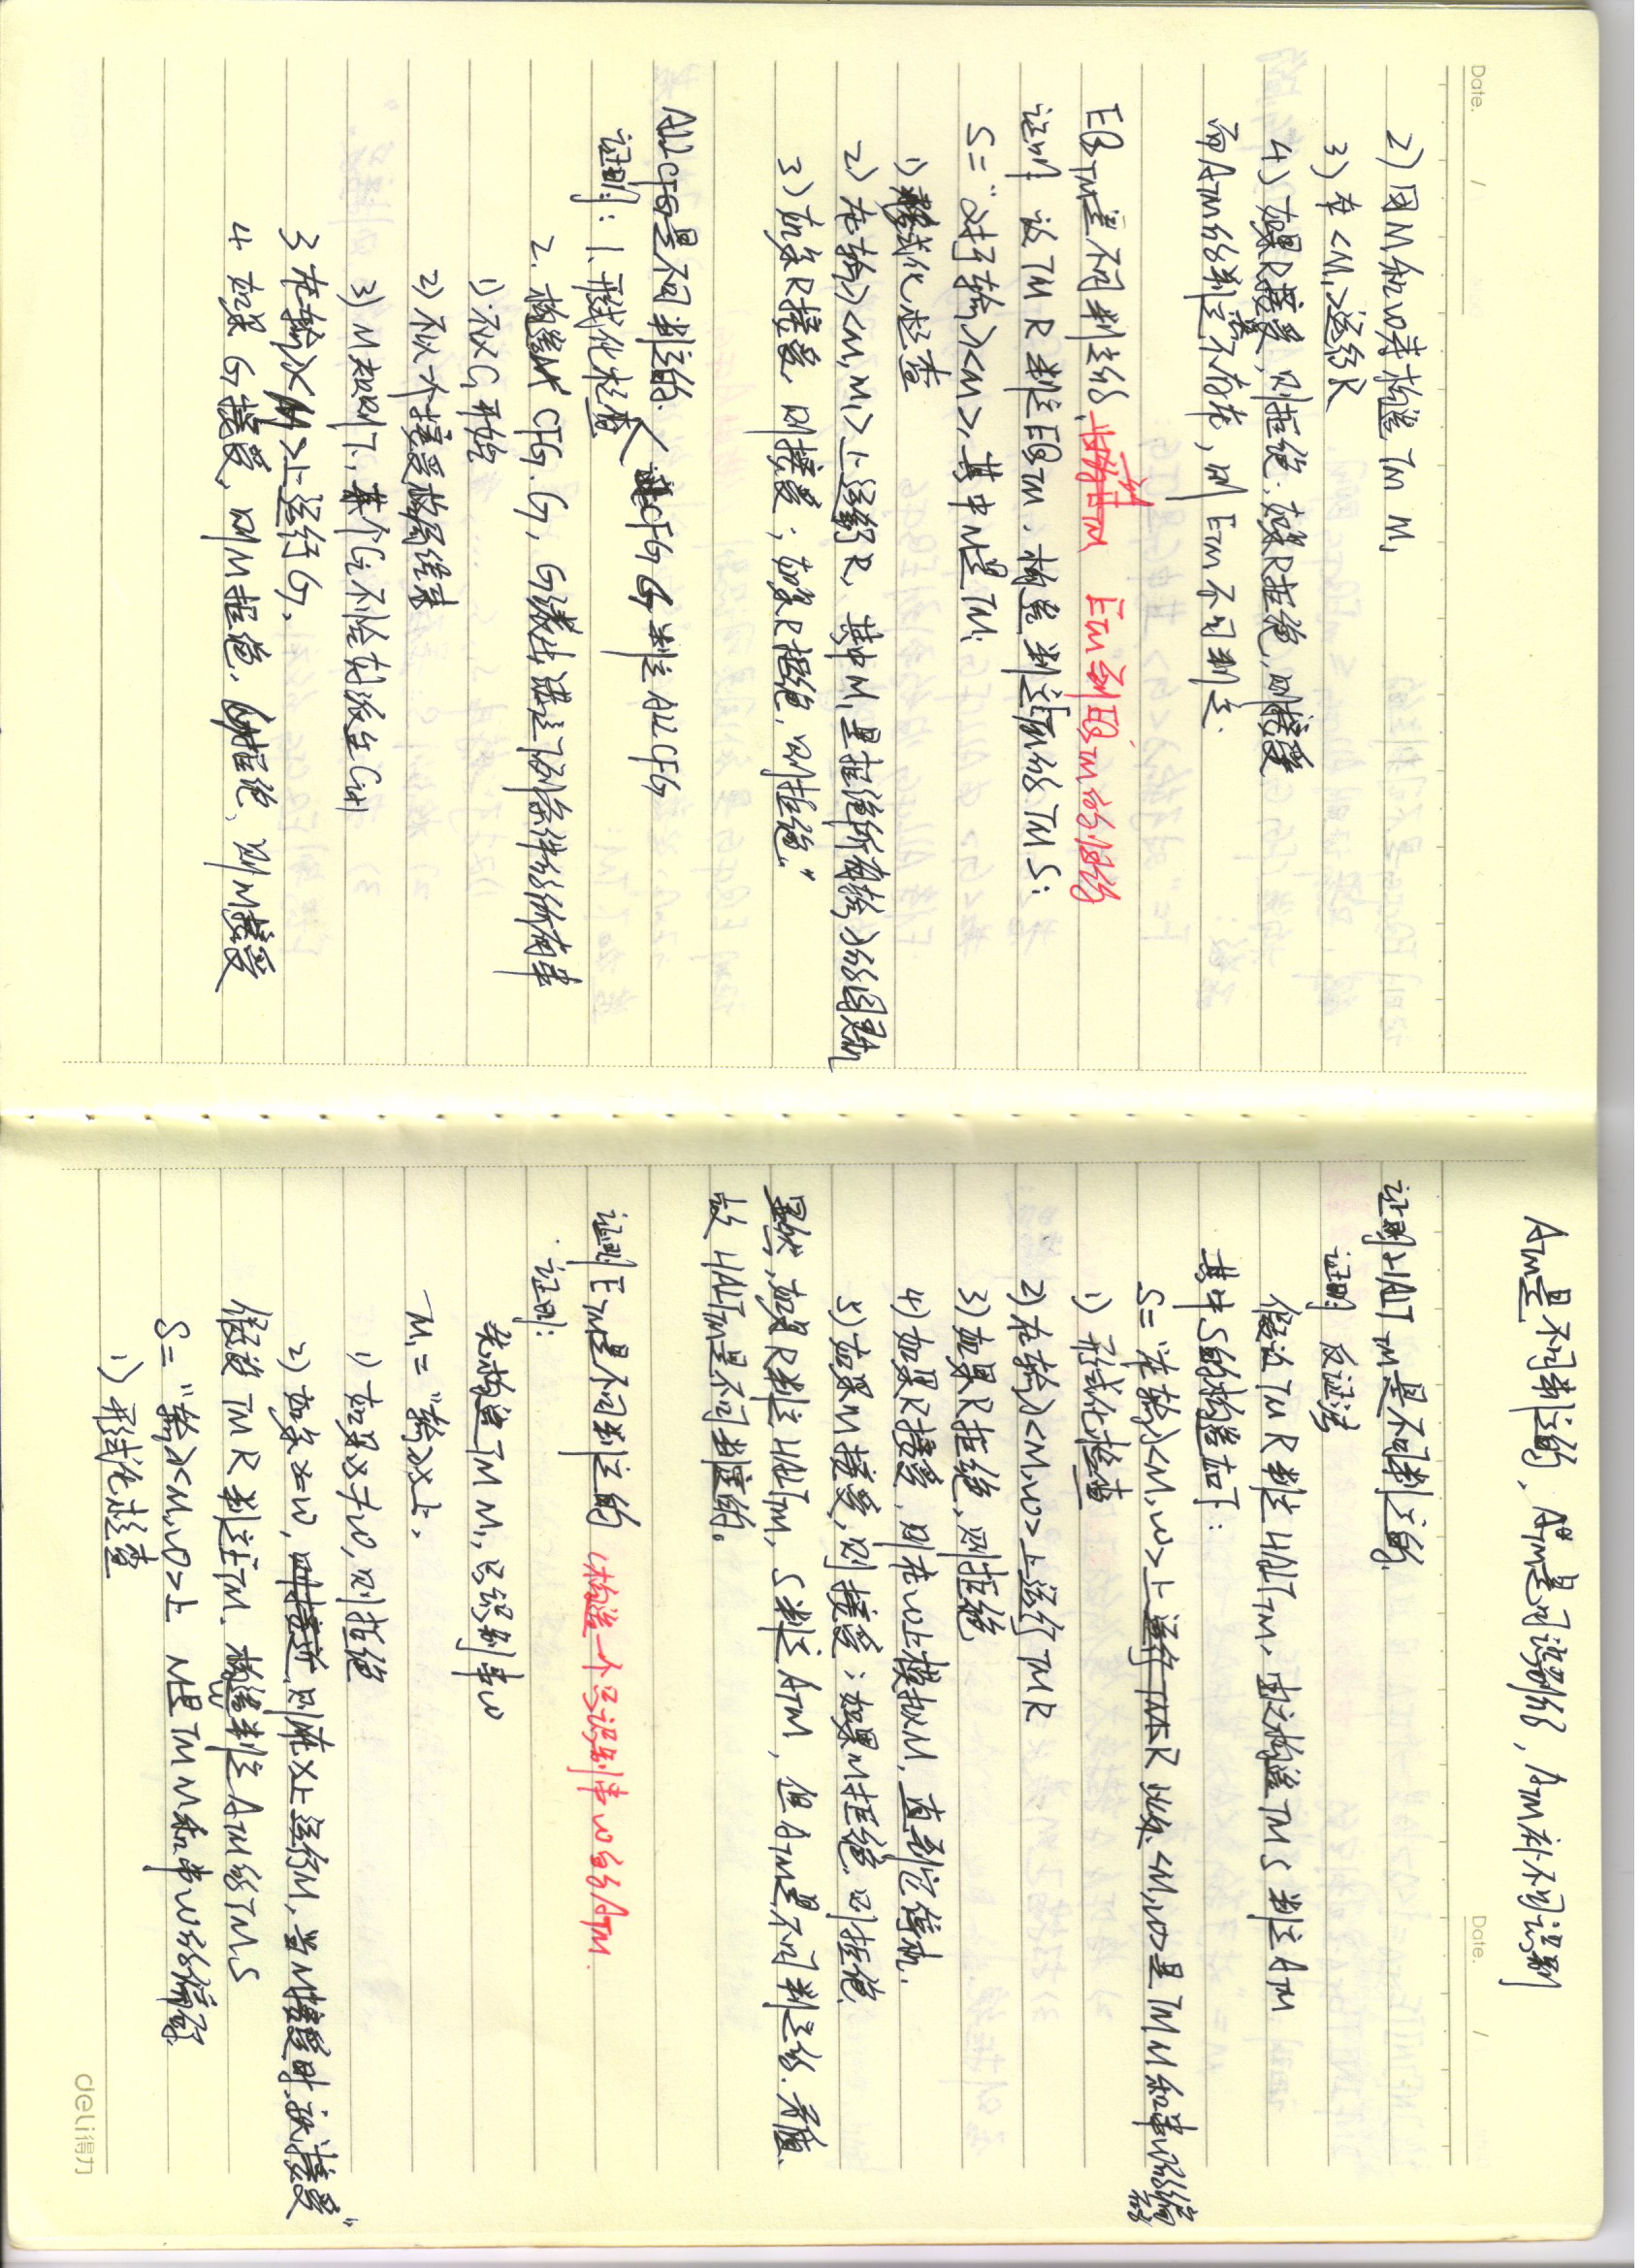 Date. /
2) 用M和w来构造 TM M₁
3) 在<M₁>运行R
4) 如果R接受,则拒绝;如果R拒绝,则接受
而A_TM的判定器不存在,则 E_TM 不可判定.
EQ_TM是不可判定的. E_TM到EQ_TM的归约
证明: 设 TM R 判定EQ_TM, 构造判定E_TM的 TM S:
S=“对于输入<M>,其中M是TM:
1) 形式化检查
2) 在输入<M,M₁>上运行R, 其中M₁是拒绝所有输入的图灵机
3) 如果R接受,则接受;如果R拒绝,则拒绝.”
ALL_CFG是不可判定的. < 设CFG G 判定 ALLCFG
证明: 1. 形式化检查
2. 构造 CFG. G, G派生出满足下列条件的所有串
1) 不以C₁开始
2) 不以一个接受格局结束
3) M规则下,某个Cᵢ不恰好派生Cᵢ₊₁
3 在输入<M>上运行G,
4 如果 G接受,则M拒绝, G拒绝,则M接受
A_TM是不可判定的, A_TM是可识别的, A_TM补不可识别
Date. /
证明HALT_TM是不可判定的.
证明 反证法
假设TM R 判定 HALT_TM, 由之构造 TM S 判定 A_TM
其中S的构造如下:
S= “在输入<M,w>上 运行 TM R 此处<M,w>是TM M和串w的编码
1) 形式化检查
2) 在输入<M,w>上运行TM R
3) 如果R拒绝,则拒绝
4) 如果R接受,则在w上模拟M,直到它停机.
5) 如果M接受,则接受;如果M拒绝,则拒绝.
显然,如果R判定HALT_TM, S判定 A_TM, 但A_TM是不可判定的.矛盾.
故 HALT_TM是不可判定的。
证明E_TM是不可判定的 (构造一个只识别串w的A_TM.
证明:
先构造 TM M₁,只识别串w
M₁ = “输入x上,
1) 如果x≠w,则拒绝
2) 如果x=w, 则接近 则在x上运行M,当M接受时,就接受”
假设 TM R 判定E_TM. 构造判定 A_TM的TM S
S= “输入<M,w>上 M是TM M和串w的编码
1) 形式化检查
deli得力